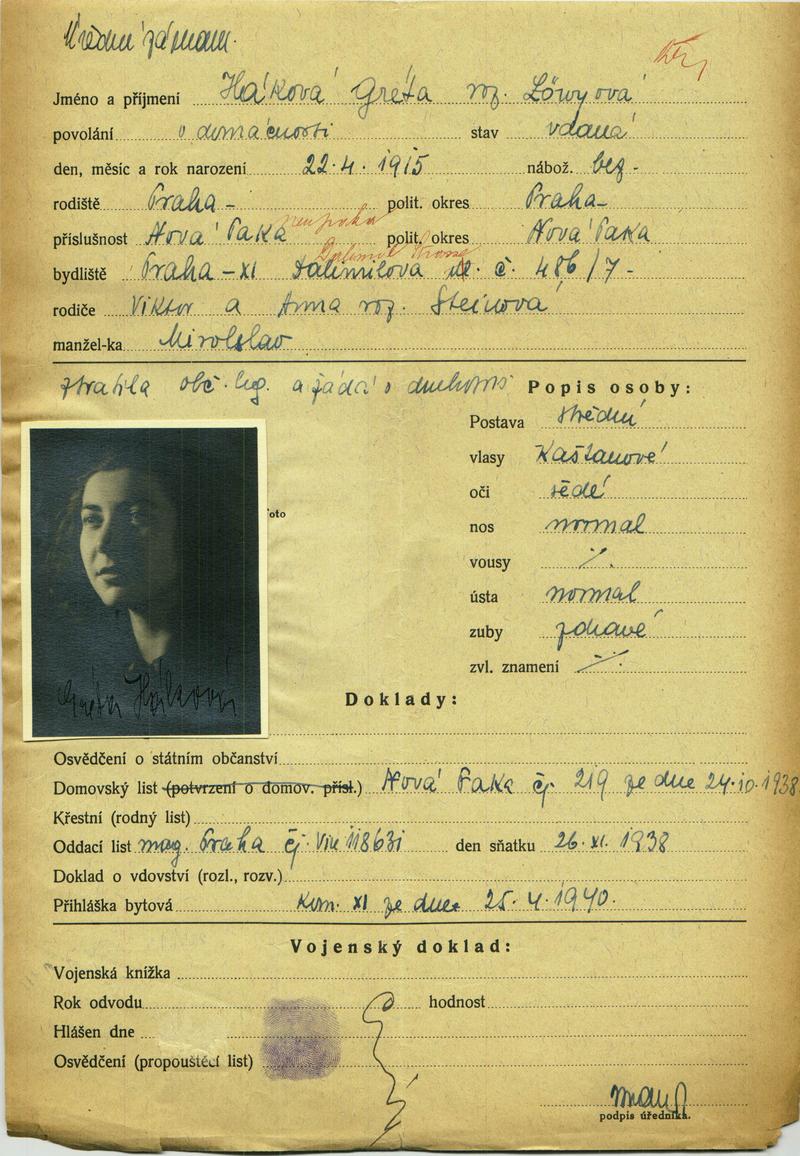 Úřední záznam.
Jméno a příjmení Háková Gréta roz. Löwyová
povolání v domácnosti stav vdaná
den, měsíc a rok narození 22.4. 1915 nábož. bez -
rodiště Praha - polit. okres Praha -
příslušnost Nová Paka polit. okres Nová Paka
bydliště Praha - XI Dalimilova ul. č. 486/7 -
rodiče Viktor a Anna roz. Steinova
manžel-ka Mirolslav
ztratila obč. leg. a žádá o Popis osoby:
Postava střední
vlasy Kaštanové
oči šedé
oto
nos normal
vousy ./.
ústa normal
zuby zdravé
zvl. znamení ./.
Gréta Háková
Doklady:
Osvědčení o státním občanství
Domovský list (potvrzení o domov. přísl.) Nová Paka čj. 219 ze dne 24.10.1938
Křestní (rodný list)
Oddací list mag. Praha čj. 118631 den sňatku 26. XI. 1938
Doklad o vdovství (rozl., rozv.)
Přihláška bytová Kom. XI ze dne 25.4.1940.
Vojenský doklad:
Vojenská knížka
Rok odvodu hodnost
Hlášen dne
Osvědčení (propouštěcí list)
podpis úředníka.